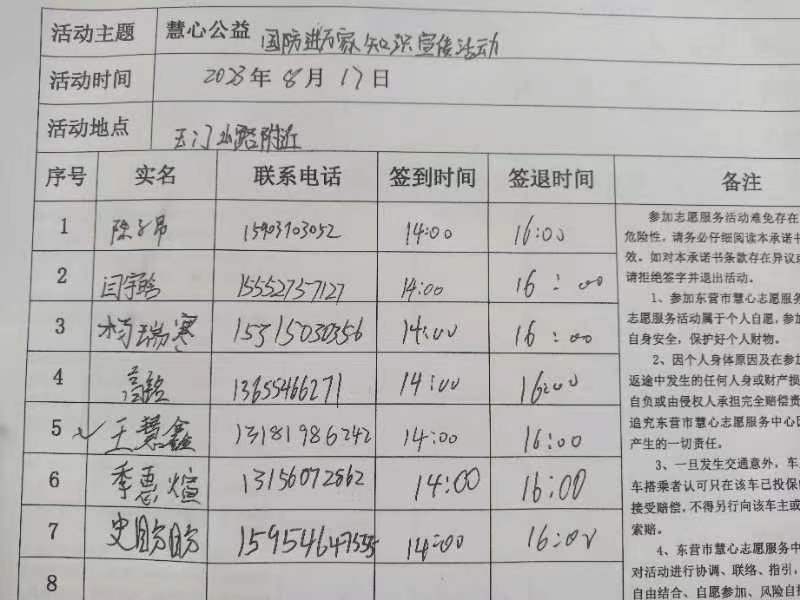 活动主题 慧心公益 国防进万家知识宣传活动
活动时间 2023年8月17日
活动地点 玉门路附近
序号 实名 联系电话 签到时间 签退时间 备注
1 陈子昂 15903703052 14:00 16:00
2 闫宇晗 15552757127 14:00 16:00
3 杨瑞寒 15315030356 14:00 16:00
4 高铭 13655466271 14:00 16:00
5 王慧鑫 13181986242 14:00 16:00
6 季惠煊 13156072862 14:00 16:00
7 史盼盼 14:00 16:00
8
参加志愿服务活动难免存在
危险性，请务必仔细阅读本承诺书
效。如对本承诺书条款存在异议或
请拒绝签字并退出活动。
1、参加东营市慧心志愿服务
志愿服务活动属于个人自愿，参加
自身安全，保护好个人财物。
2、因个人身体原因及在参加
返途中发生的任何人身或财产损
自负或由侵权人承担完全赔偿责
追究东营市慧心志愿服务中心因
产生的一切责任。
3、一旦发生交通意外，车
车搭乘者认可只在该车已投保
接受赔偿，不得另行向该车主或
索赔。
4、东营市慧心志愿服务中
对活动进行协调、联络、指引，
自由结合、自愿参加、风险自担